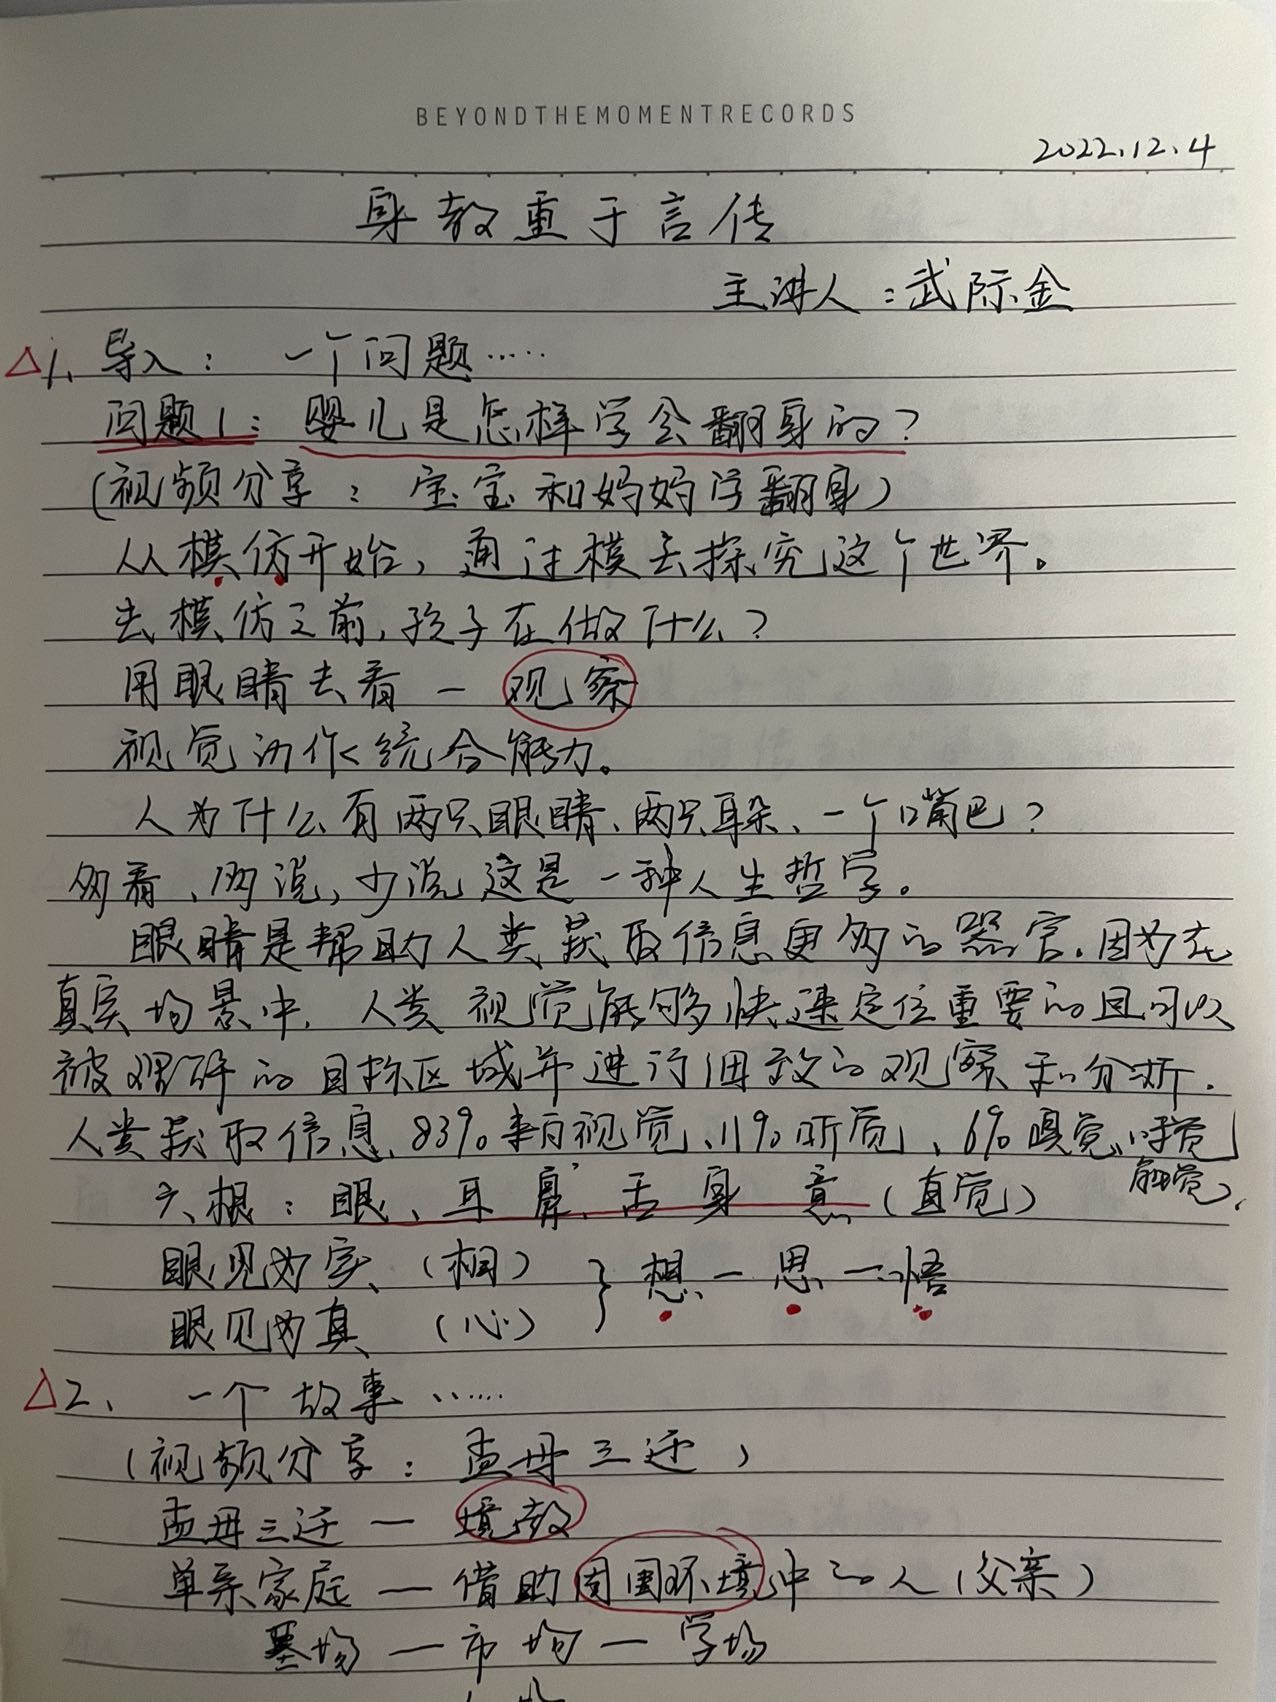 BEYONDTHEMOMENTRECORDS
2022.12.4
身教重于言传
主讲人：武际金
△1、导入：一个问题……
问题1：婴儿是怎样学会翻身的？
（视频分享：宝宝和妈妈学翻身）
从模仿开始，通过模去探究这个世界。
去模仿之前，孩子在做什么？
用眼睛去看—观察
视觉动作统合能力。
人为什么有两只眼睛、两只耳朵、一个嘴巴？
多看、听说，少说这是一种人生哲学。
眼睛是帮助人类获取信息更多的器官．因为在
真实场景中．人类视觉能够快速定位重要的且可以
被理解的目标区域并进行细致的观察和分析．
人类获取信息、83%来自视觉、11%听觉、6%嗅觉、味觉
触觉、
六根：眼、耳鼻、舌身意（直觉）
眼见为实（相）
眼见为真（心）｝想—思—悟
△2、一个故事……
（视频分享：孟母三迁）
孟母三迁—境教
单亲家庭—借助周围环境中的人（父亲）
墓场—市场—学场